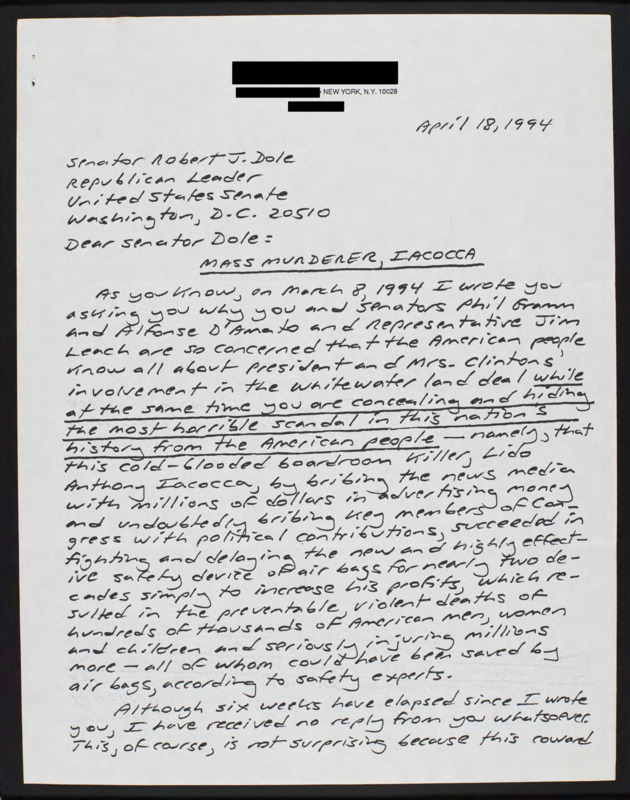 NEW YORK, N.Y. 10028
April 18, 1994
Senator Robert J. Dole
Republican Leader
United States Senate
Washington, D.C. 20510
Dear Senator Dole:
MASS MURDERER, IACOCCA
As you know, on March 8, 1994 I wrote you
asking you why you and Senators Phil Gramm
and Alfonse D'Amato and Representative Jim
Leach are so concerned that the American people
know all about President and Mrs. Clintons'
involvement in the Whitewater land deal while
at the same time you are concealing and hiding
the most horrible scandal in this nation's
history from the American people — namely, that
this cold-blooded boardroom killer, Lido
Anthony Iacocca, by bribing the news media
with millions of dollars in advertising money
and undoubtedly bribing key members of Con-
gress with political contributions, succeeded in
fighting and delaying the new and highly effect-
ive safety device of air bags for nearly two de-
cades simply to increase his profits, which re-
sulted in the preventable, violent deaths of
hundreds of thousands of American men, women
and children and seriously injuring millions
more — all of whom could have been saved by
air bags, according to safety experts.
Although six weeks have elapsed since I wrote
you, I have received no reply from you whatsoever.
This, of course, is not surprising because this coward